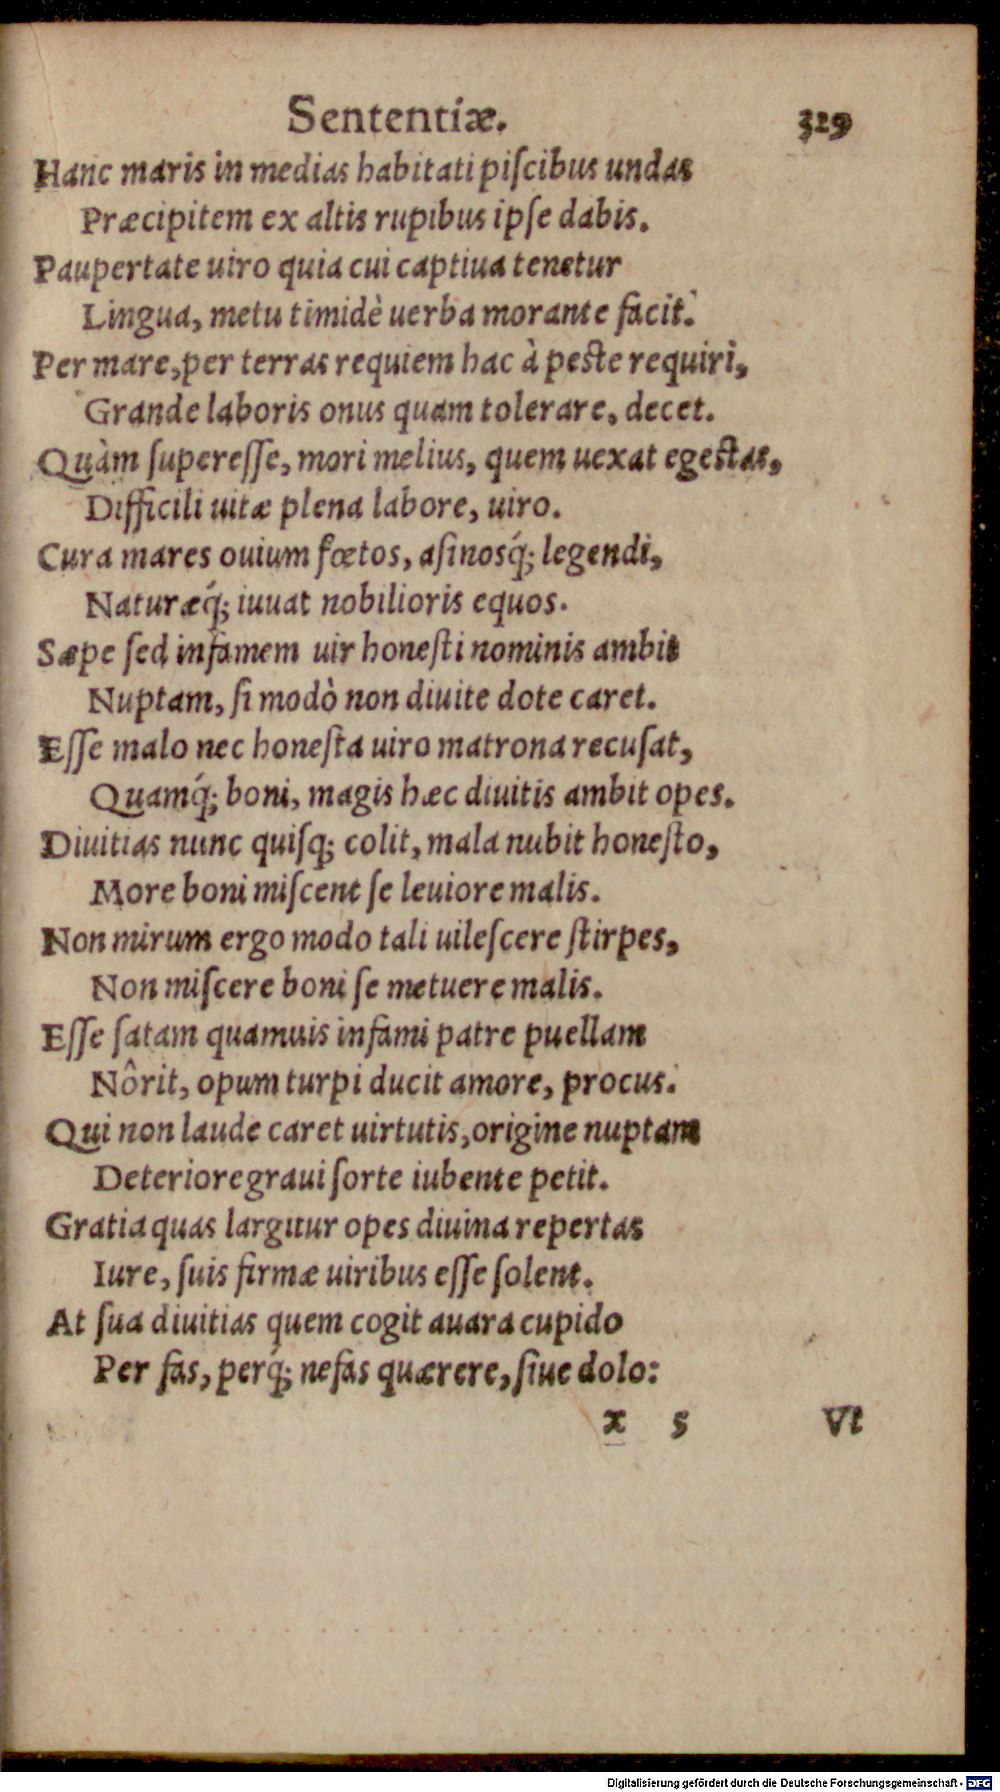 Sententiæ. 329
Hanc maris in medias habitati piſcibus undas
Præcipitem ex altis rupibus ipſe dabis.
Paupertate uiro quia cui captiua tenetur
Lingua, metu timidè uerba morante facit.
Per mare, per terras requiem hac à peste requiri,
Grande laboris onus quam tolerare, decet.
Quàm ſupereſſe, mori melius, quem uexat egestas,
Difficili uitæ plena labore, uiro.
Cura mares ouium fœtos, aſinosq́; legendi,
Naturæq́; iuuat nobilioris equos.
Sæpe ſed infamem uir honeſti nominis ambit
Nuptam, ſi modò non diuite dote caret.
Eſſe malo nec honeſta uiro matrona recuſat,
Quamq́; boni, magis hæc diuitis ambit opes.
Diuitias nunc quiſq; colit, mala nubit honeſto,
More boni miſcent ſe leuiore malis.
Non mirum ergo modo tali uileſcere ſtirpes,
Non miſcere boni ſe metuere malis.
Eſſe ſatam quamuis infami patre puellam
Nôrit, opum turpi ducit amore, procus.
Qui non laude caret uirtutis, origine nuptam
Deteriore graui ſorte iubente petit.
Gratia quas largitur opes diuina repertas
Iure, ſuis firmæ uiribus eſſe ſolent.
At ſua diuitias quem cogit auara cupido
Per fas, perq́; nefas quærere, ſiue dolo:
x 5 Vt
Digitalisierung gefördert durch die Deutsche Forschungsgemeinschaft - DFG